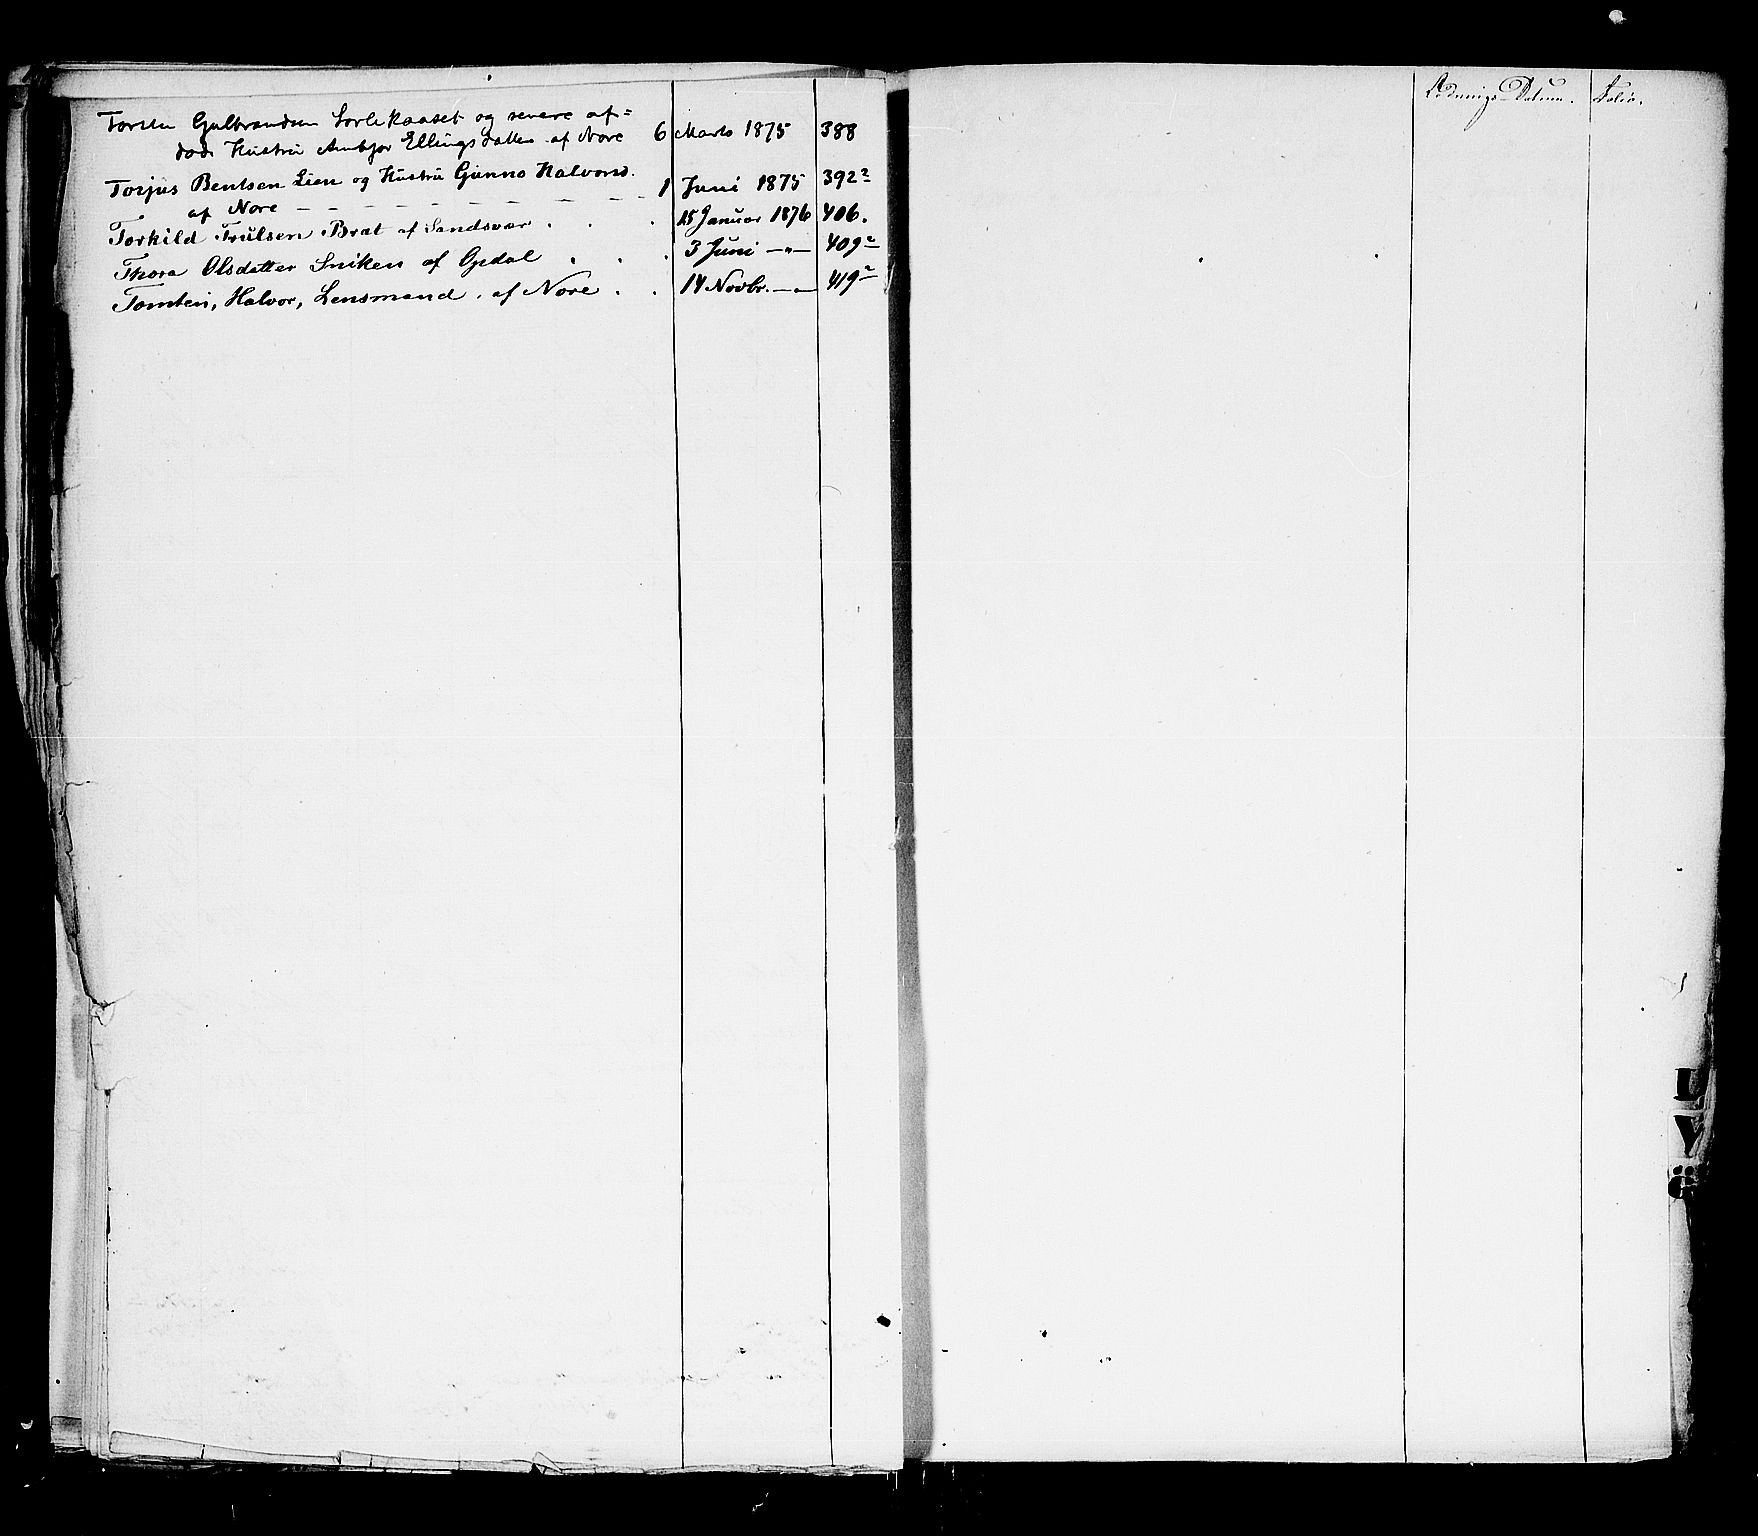 Torsten Gulbrandsen Sorlekaaset og senere af=
død Hustru Ambjor Ellingsdatter af Nore 6 Marts 1875 388
Torjus Bentsen Lien og Hustru Gunno Halvorsd.
af Nore — — — — — — — — 1 Juni 1875 392²
Torkild Trulsen Brat af Sandsvær . . . 15 Januar 1876 406.
Thora Olsdatter Sniken af Opdal . . . 3 Juni —"— 409²
Tomten, Halvor, Lensmand, af Nore . . 14 Novbr. —"— 419²
Lodnings-Datum. Folio.
U
Y